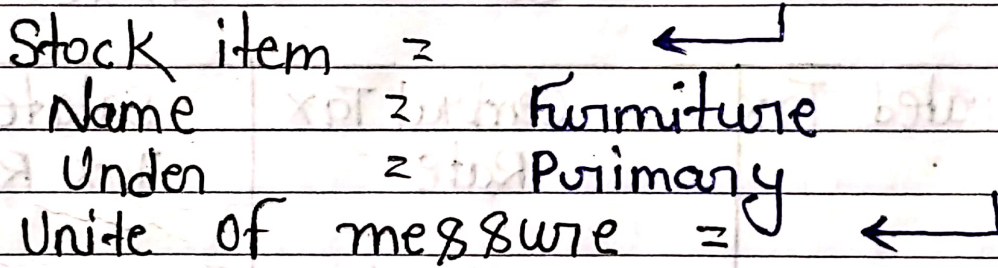 Stock item = ←
Name = Furniture
Under = Primary
Unite of messure = ←